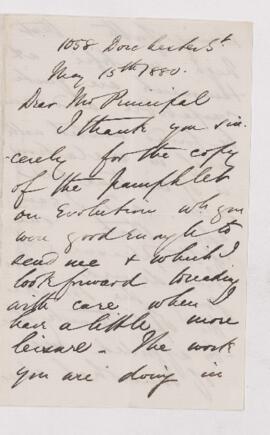 1058 Dorchester St
May 15th 1880.
Dear Mr Principal
I thank you sin-
-cerely for the copy
of the pamphlet
on Evolution wh you
were good Enough to
send me & which I
look forward to reading
with care when I
have a little more
leisure - The work
you are doing in